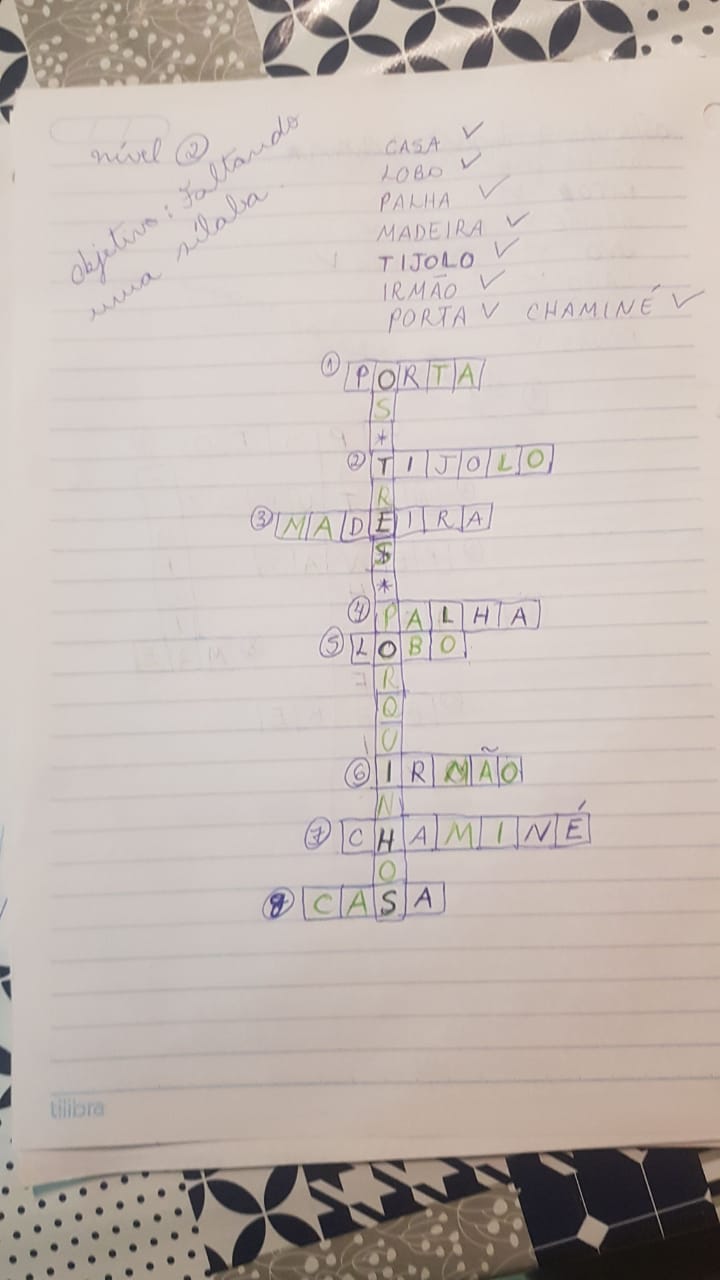 nível ②
objetivo: Faltando
uma sílaba.
CASA ✓
LOBO ✓
PALHA ✓
MADEIRA ✓
TIJOLO ✓
IRMÃO ✓
PORTA ✓ CHAMINÉ ✓
① PORTA
S
*
② TIJOLO
R
③ MADEIRA
S
*
④ PALHA
⑤ LOBO
R
Q
U
⑥ IRMÃO
N
⑦ CHAMINÉ
O
⑧ CASA
tilibra